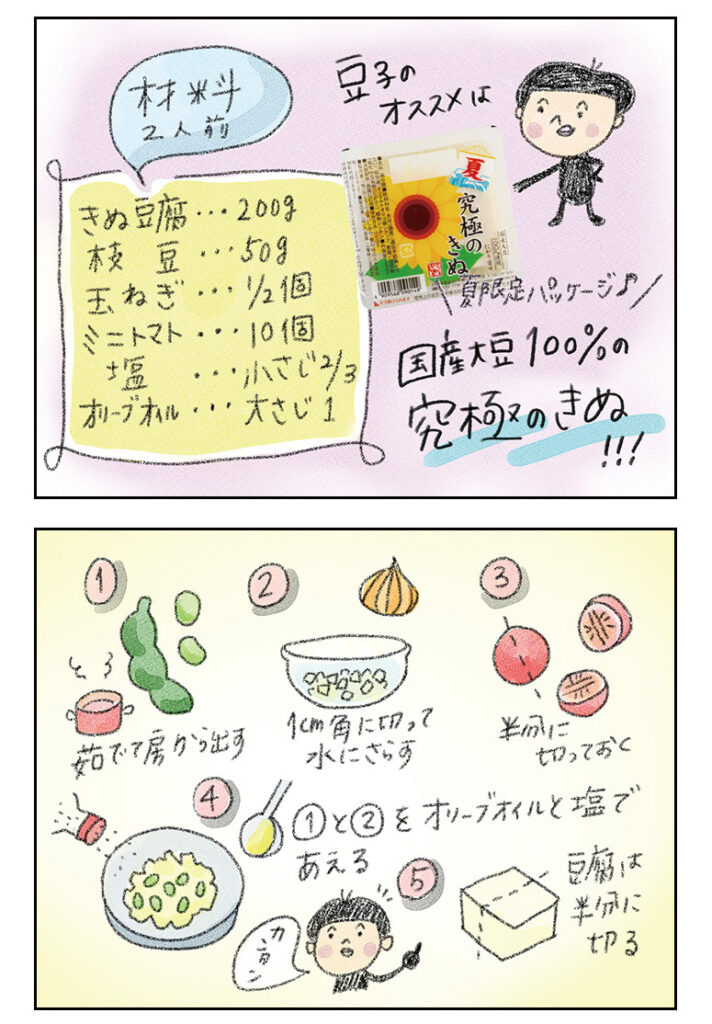 材料
2人前
きぬ豆腐・・・200g
枝豆・・・50g
玉ねぎ・・・1/2個
ミニトマト・・・10個
塩・・・小さじ2/3
オリーブオイル・・・大さじ1
豆子の
オススメは
夏
究極の
きぬ
夏限定パッケージ♪
国産大豆100%の
究極のきぬ
!!!
1
茹でて房から出す
2
1cm角に切って
水にさらす
3
半分に
切っておく
4
①と②をオリーブオイルと塩で
あえる
5
豆腐は
半分に
切る